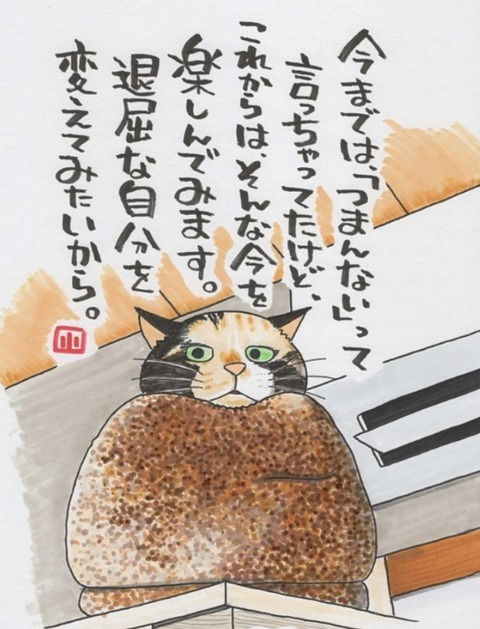 今までは、「つまんない」って
言っちゃってたけど、
これからは、そんな今を
楽しんでみます。
退屈な自分を
変えてみたいから。